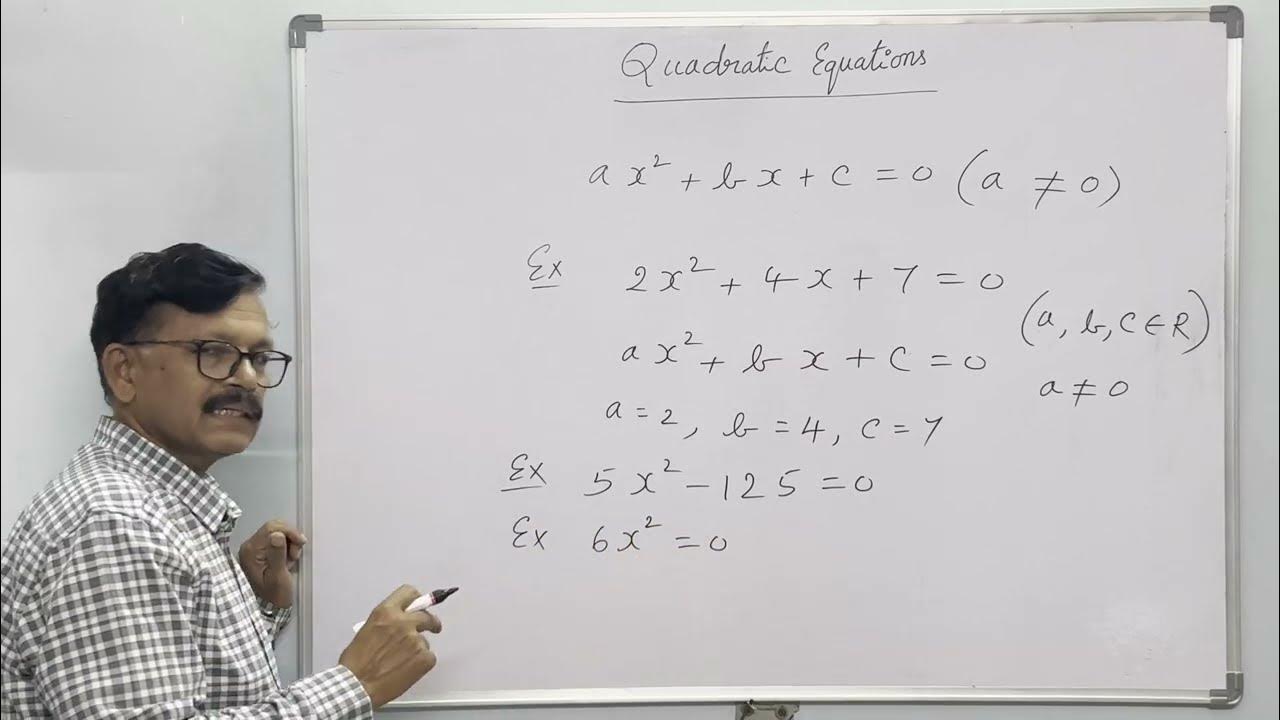 Quadratic Equations
ax² + bx + c = 0 (a ≠ 0)
Ex 2x² + 4x + 7 = 0
(a, b, c ∈ R)
ax² + bx + c = 0
a ≠ 0
a = 2, b = 4, c = 7
Ex 5x² - 125 = 0
Ex 6x² = 0